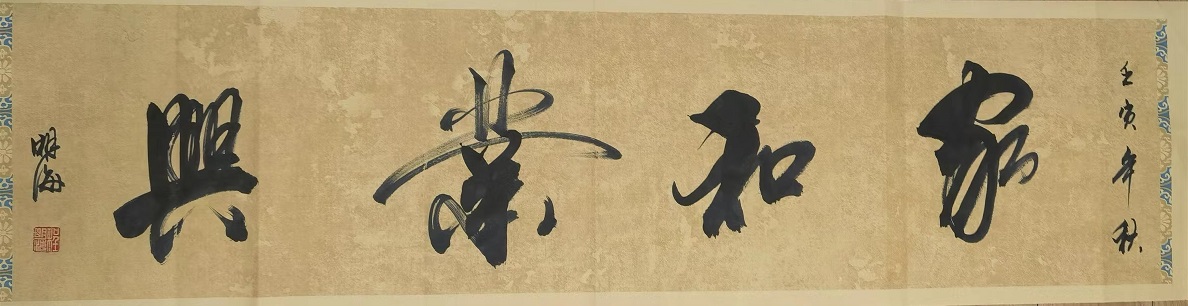 壬寅年秋
家和業興
明海